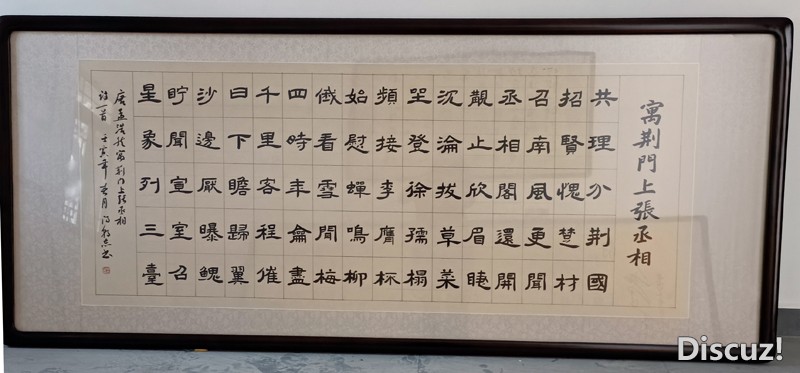 寓荆門上張丞相
共理分荆國
招賢愧楚材
召南風更聞
丞相閣還開
觀止欣眉睫
沉淪拔草萊
坐登徐孺榻
頻接李膺杯
始慰蟬鳴柳
俄看雪間梅
四時年籥盡
千里客程催
日下瞻歸翼
沙邊厭曝鰓
貯聞宣室召
星象列三臺
唐孟浩然寓荆门上张丞相
詩一首 壬寅年春月 书
Discuz!